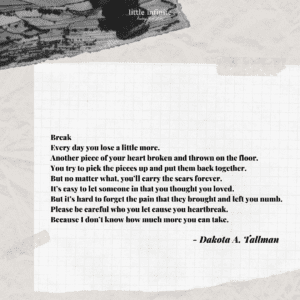 little infinite
Break
Every day you lose a little more.
Another piece of your heart broken and thrown on the floor.
You try to pick the pieces up and put them back together.
But no matter what, you'll carry the scars forever.
It's easy to let someone in that you thought you loved.
But it's hard to forget the pain that they brought and left you numb.
Please be careful who you let cause you heartbreak.
Because I don't know how much more you can take.
- Dakota A. Tallman